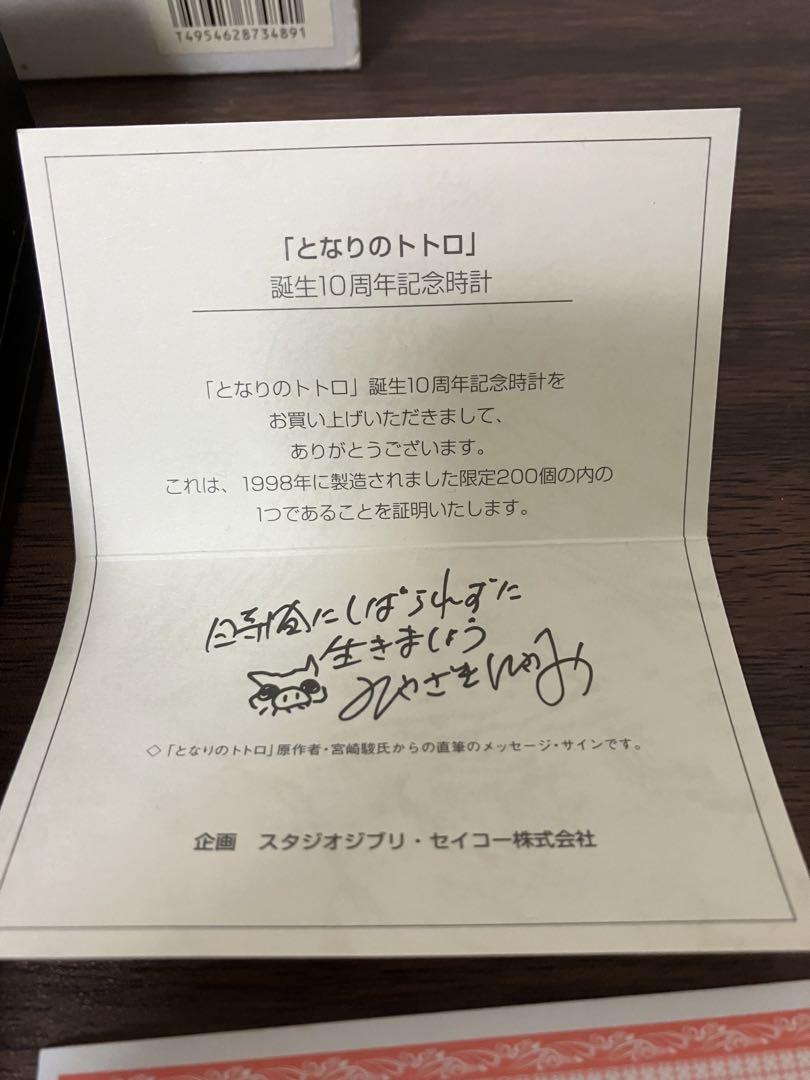 T4954628734891
「となりのトトロ」
誕生10周年記念時計
「となりのトトロ」誕生10周年記念時計を
お買い上げいただきまして、
ありがとうございます。
これは、1998年に製造されました限定200個の内の
1つであることを証明いたします。
時間にしばられずに
生きましょう
みやざきはやお
◇「となりのトトロ」原作者・宮崎駿氏からの直筆のメッセージ・サインです。
企画　スタジオジブリ・セイコー株式会社